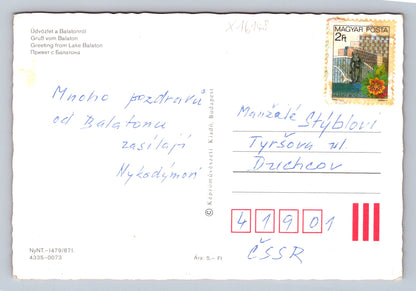 Üdvözlet a Balatonról
Gruß vom Balaton
Greeting from Lake Balaton
Привет с Балатона
MAGYAR POSTA
2Ft
Mnoho pozdravů
od Balatonu
zasílají
Nykodýmovi
© Képzőművészeti Kiadó, Budapest
Manželé Stýblovi
Tyršova ul
Duchcov
41901
ČSSR
NyNT.-1479/871.
4335-0073
Ára: 5.- Ft